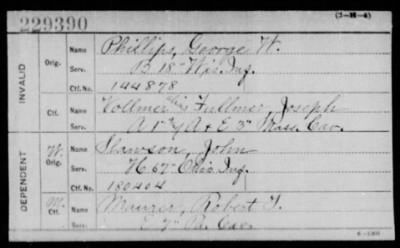 (3-H-4)
229390
INVALID
Orig. Name Phillips, George W.
Serv. B 18" Wis. Inf.
Ctf. No. 144878
Ctf. Name Vollmer alias Fullmer, Joseph
Serv. A 1" A & E 3" Mass. Cav.
DEPENDENT
W. Orig. Name Slawson, John
Serv. H 67 Ohio Inf.
Ctf. No. 180404
M. Ctf. Name Maurer, Robert
Serv. 7" Pa. Cav.